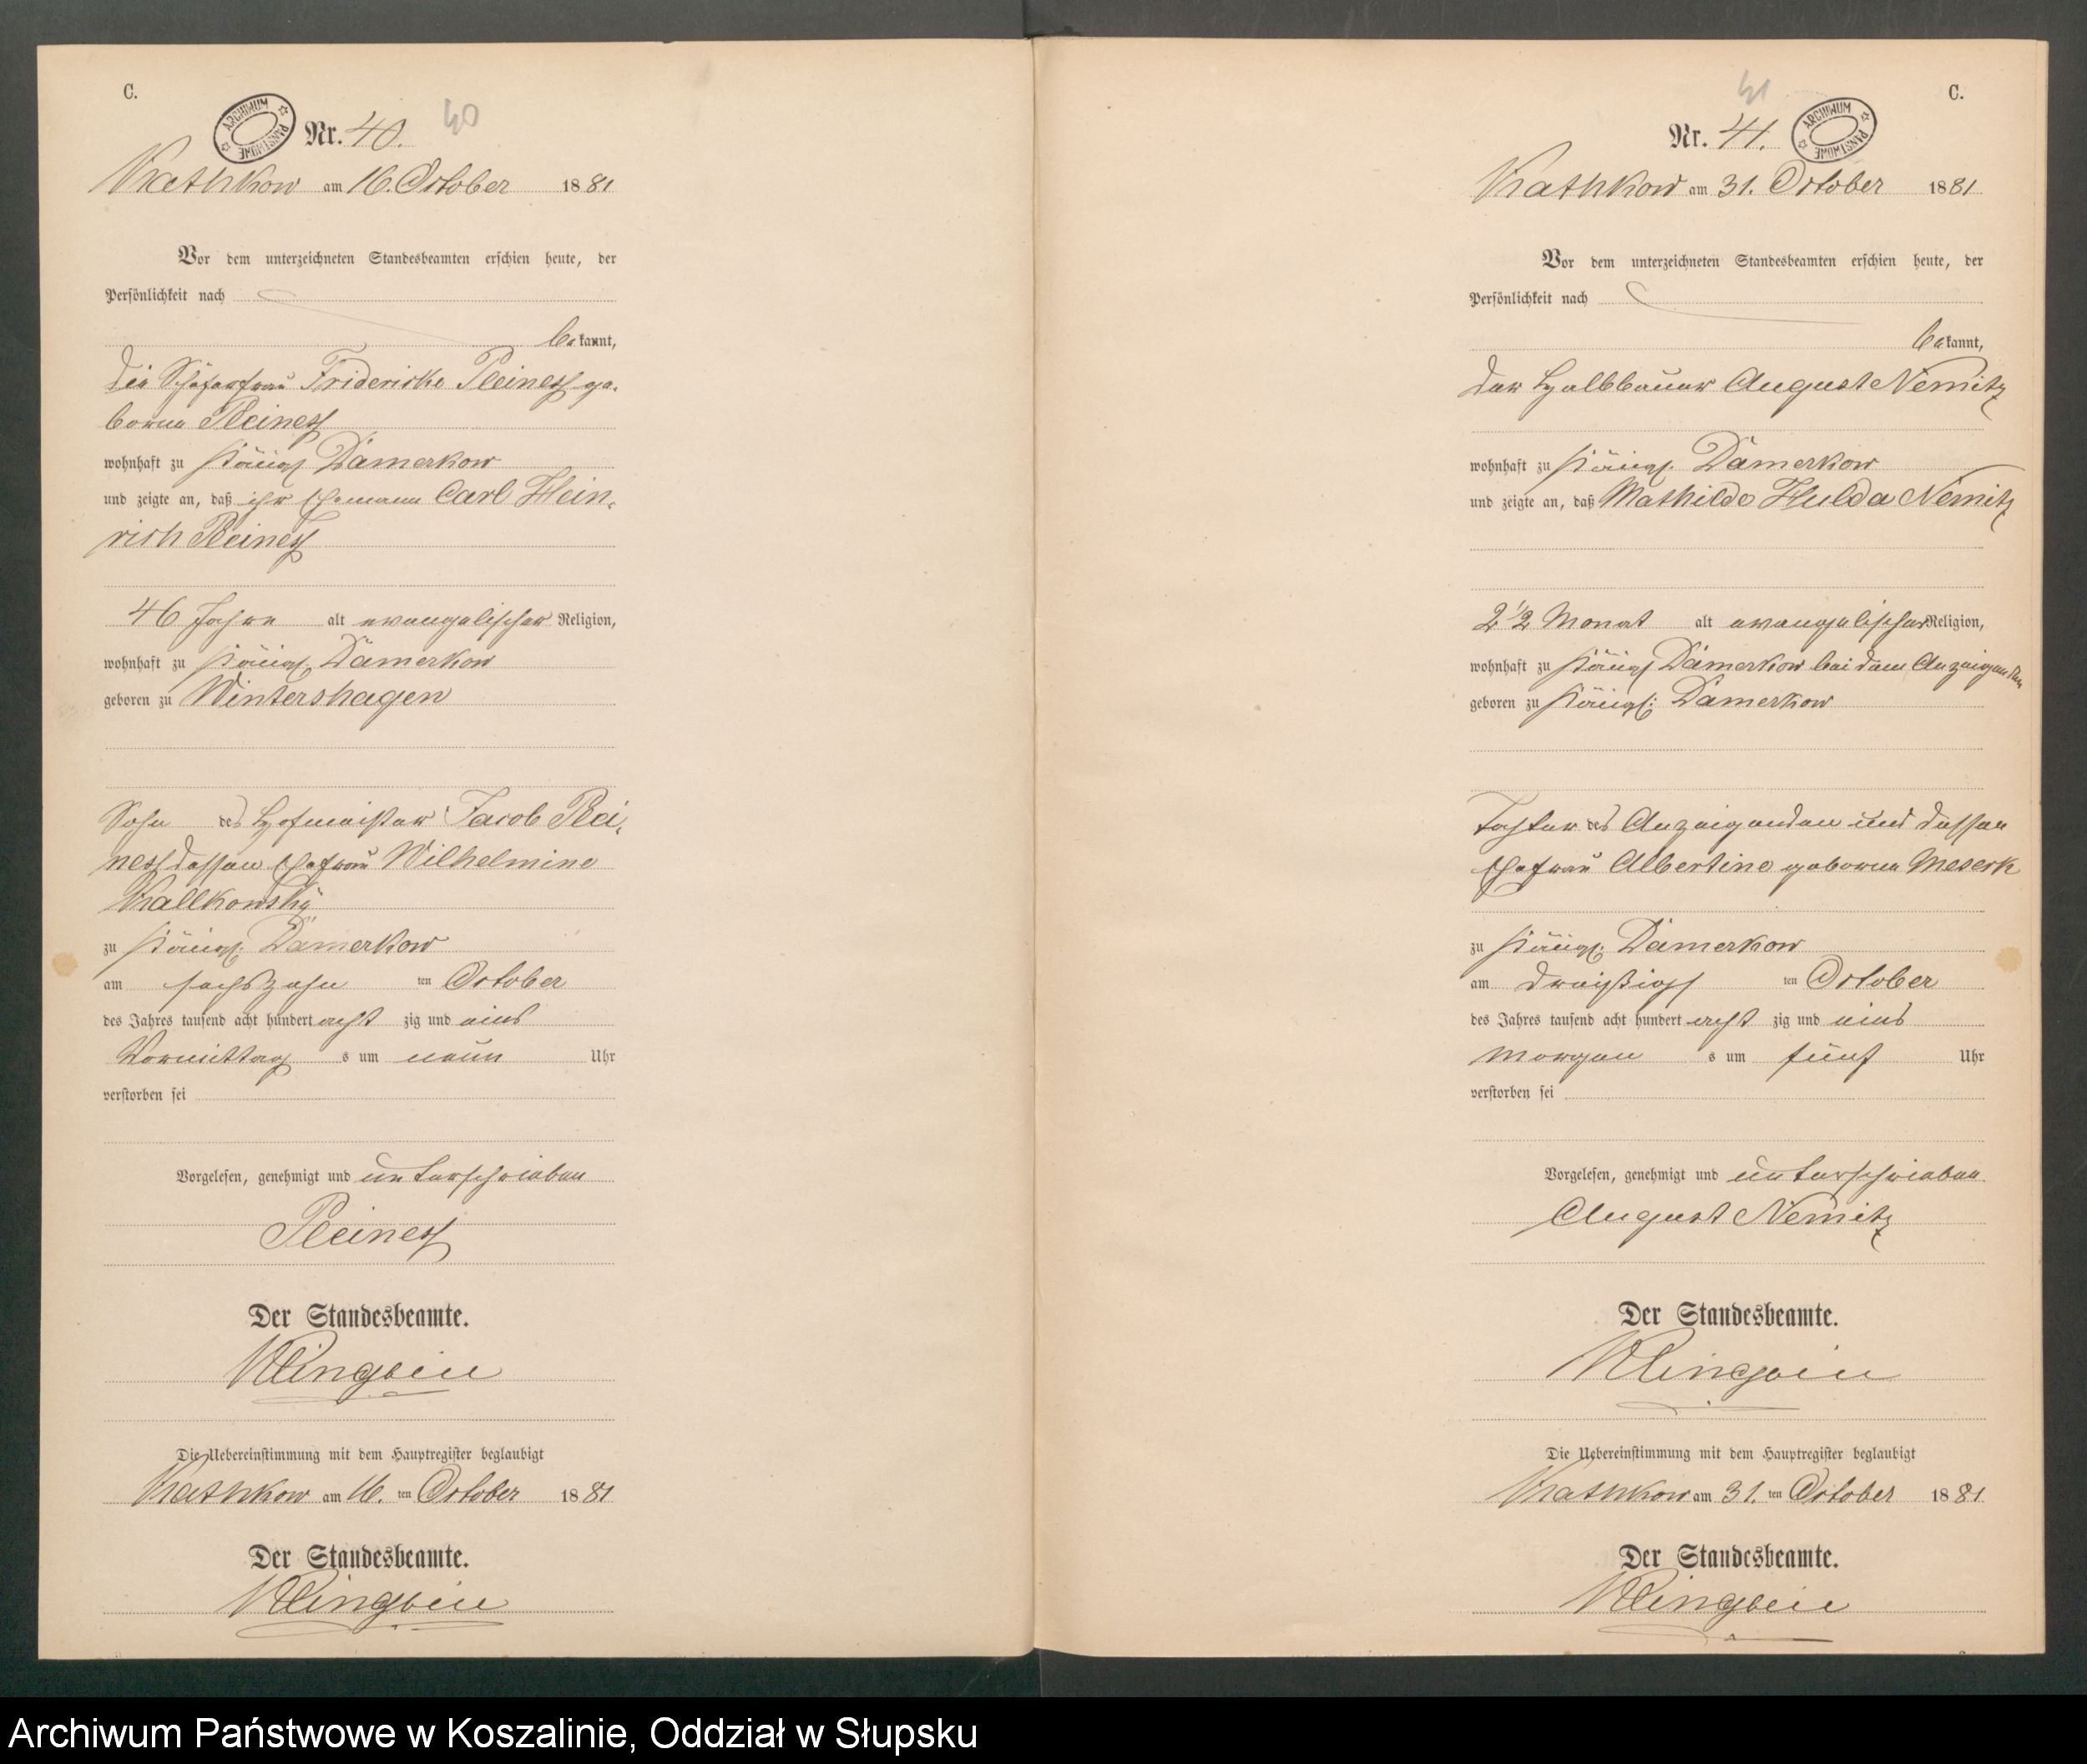 C.
ARCHIWUM PAŃSTWOWE
Nr. 40.
40
Rathkow am 16. October 1881
Vor dem unterzeichneten Standesbeamten erschien heute, der
Persönlichkeit nach
bekannt,
die Schäferfrau Friderieke Pleiness ge-
borne Pleiness
wohnhaft zu Königl. Dämerkow
und zeigte an, daß ihr Ehemann Carl Hein-
rich Pleiness
46 Jahre alt evangelischer Religion,
wohnhaft zu Königl. Dämerkow
geboren zu Wintershagen
Sohn des Hofmeister Jacob Plei-
ness dessen Ehefrau Wilhelmine
Kallkowsky
zu Königl. Dämerkow
am sechszehn ten October
des Jahres tausend acht hundert acht zig und eins
Vormittag s um neun Uhr
verstorben sei
Vorgelesen, genehmigt und unterschrieben
Pleiness
Der Standesbeamte.
Klingbeil
Die Uebereinstimmung mit dem Hauptregister beglaubigt
Rathkow am 16. ten October 1881
Der Standesbeamte.
Klingbeil
41
C.
Nr. 41.
ARCHIWUM PAŃSTWOWE
Rathkow am 31. October 1881
Vor dem unterzeichneten Standesbeamten erschien heute, der
Persönlichkeit nach
bekannt,
der Halbbauer August Nemitz
wohnhaft zu Königl. Dämerkow
und zeigte an, daß Mathilde Hulda Nemitz
2 1/2 Monat alt evangelischer Religion,
wohnhaft zu Königl. Dämerkow bei dem Anzeigenden
geboren zu Königl: Dämerkow
Tochter des Anzeigenden und dessen
Ehefrau Albertine geborne Meseck
zu Königl. Dämerkow
am dreißigs ten October
des Jahres tausend acht hundert acht zig und eins
Morgen s um fünf Uhr
verstorben sei
Vorgelesen, genehmigt und unterschrieben
August Nemitz
Der Standesbeamte.
Klingbeil
Die Uebereinstimmung mit dem Hauptregister beglaubigt
Rathkow am 31. ten October 1881
Der Standesbeamte.
Klingbeil
Archiwum Państwowe w Koszalinie, Oddział w Słupsku